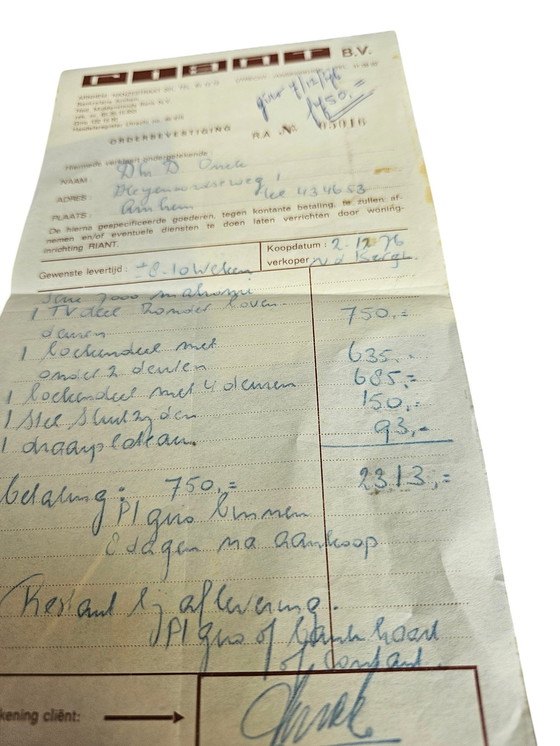 RIANT B.V.
giro 9/12/76
750,=
ORDERBEVESTIGING R.A. №
Hiermede verklaart ondergetekende
NAAM: Dhr D
ADRES: tel 434653
PLAATS: Arnhem
De hierna gespecificeerde goederen, tegen kontante betaling, te zullen af-
nemen en/of eventuele diensten te doen laten verrichten door woning-
inrichting RIANT.
Gewenste levertijd: ±8-10 weken
Koopdatum: 2-12-76
verkoper v d Bergh
Serie 7000 mahonie
1 TV deel zonder boven- 750,=
deuren
1 boekendeel met 635,-
onder 2 deuren
1 boekendeel met 4 deuren 685,=
1 stel slutzyden 150,-
1 draayplateau. 93,-
betaling: 750,= 2313,=
P/giro binnen
8 dagen na aankoop
Restant by aflevering.
P/giro of bank kaart
of contant.
kening cliënt: